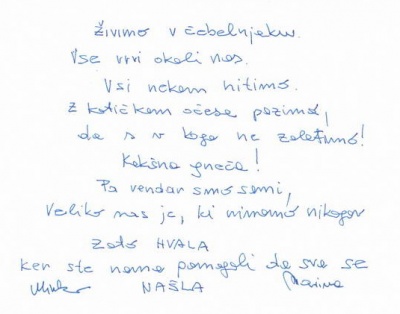 Živimo v čebelnjeku.
Vse vrvi okoli nas.
Vsi nekam hitimo.
Z kotičkom očesa pazimo,
da s v koga ne zaletimo!
Kakšna gneča!
Pa vendar smo sami,
veliko nas je, ki nimamo nikogar
Zato HVALA
ker ste nama pomagali da sva se
NAŠLA Marina